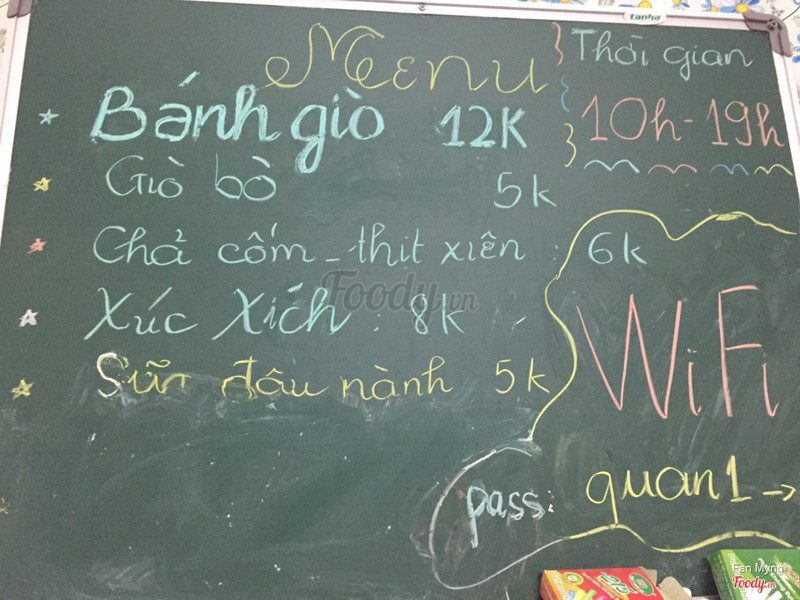 tanha
Menu
Thời gian
10h-19h
Bánh giò 12K
Giò bò 5k
Chả cốm - thịt xiên : 6k
Xúc Xích : 8k
Sữa đậu nành 5k
WiFi
pass: quan1 →
Foody.vn
Fan Myng
Foody.vn